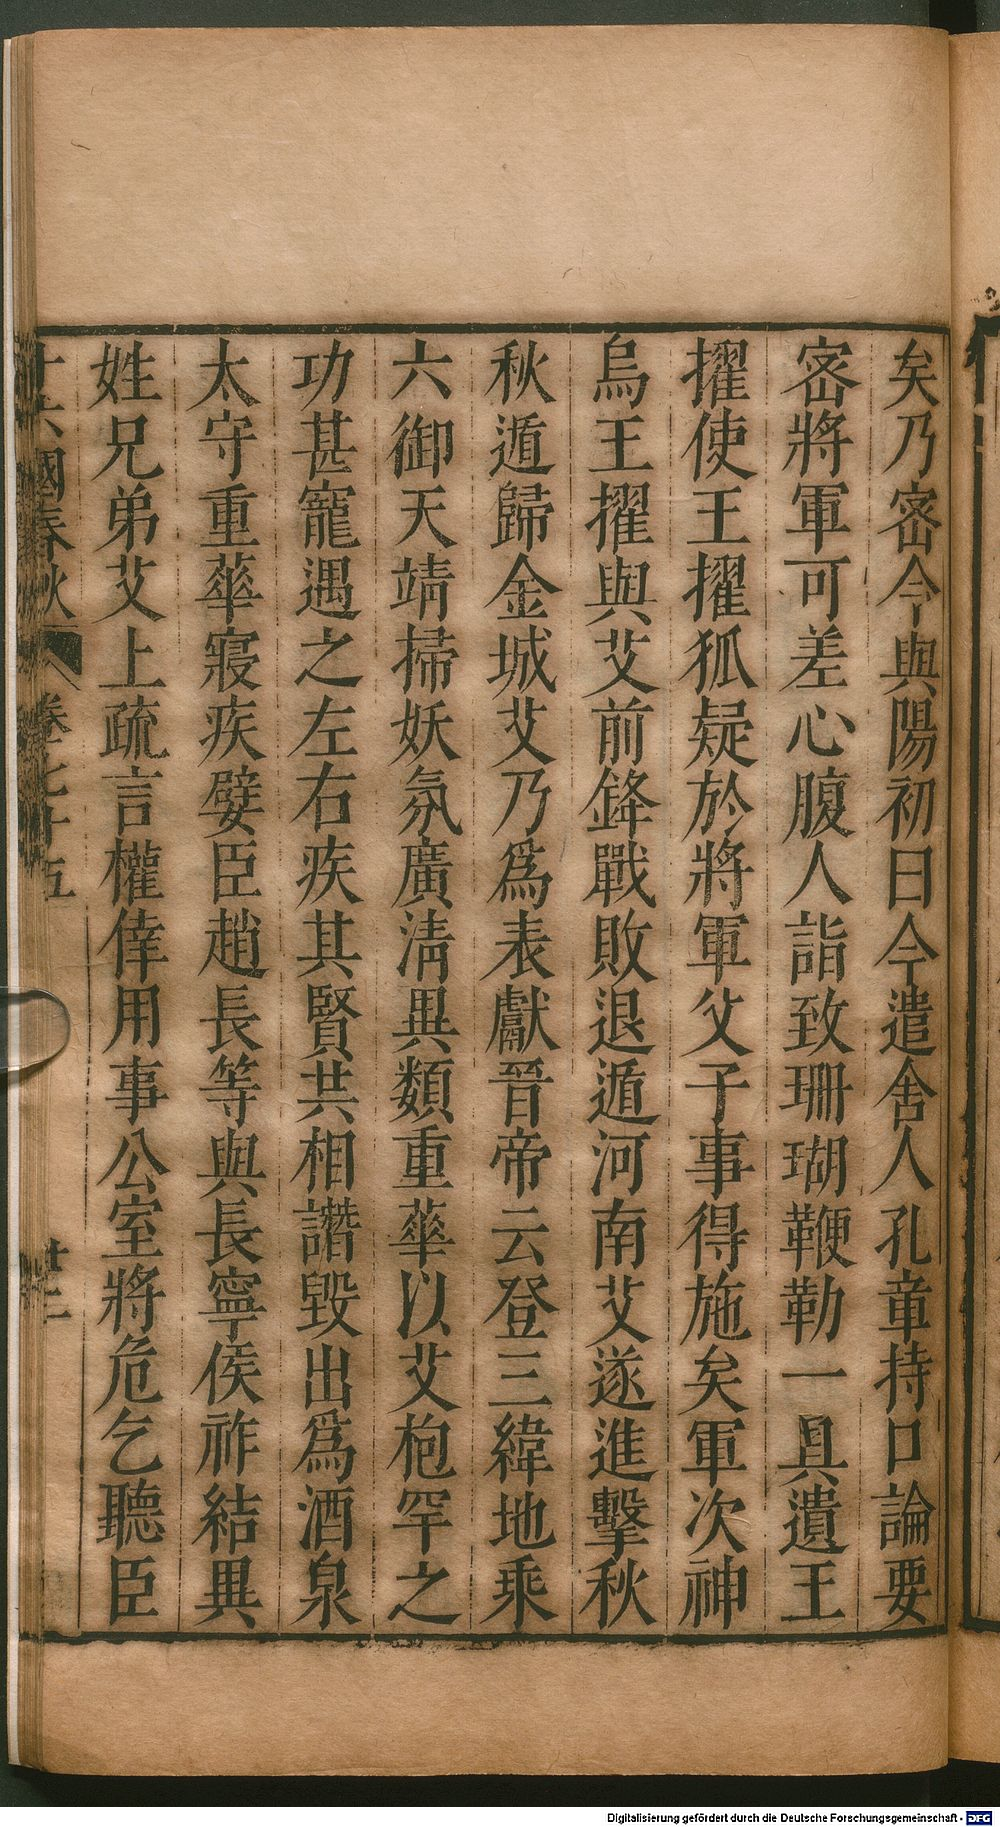 矣乃密令與陽初曰今遣舍人孔章持口論要
密將軍可差心腹人詣致珊瑚鞭勒一具遺王
擢使王擢狐疑於將軍父子事得施矣軍次神
烏王擢與艾前鋒戰敗退遁河南艾遂進擊秋
秋遁歸金城艾乃爲表獻晉帝云登三緯地乘
六御天靖掃妖氛廣淸異類重華以艾枹罕之
功甚寵遇之左右疾其賢共相譖毀出爲酒泉
太守重華寢疾嬖臣趙長等與長寧侯祚結異
姓兄弟艾上疏言權倖用事公室將危乞聽臣
十六國春秋 卷七十五 廿二
Digitalisierung gefördert durch die Deutsche Forschungsgemeinschaft - DFG